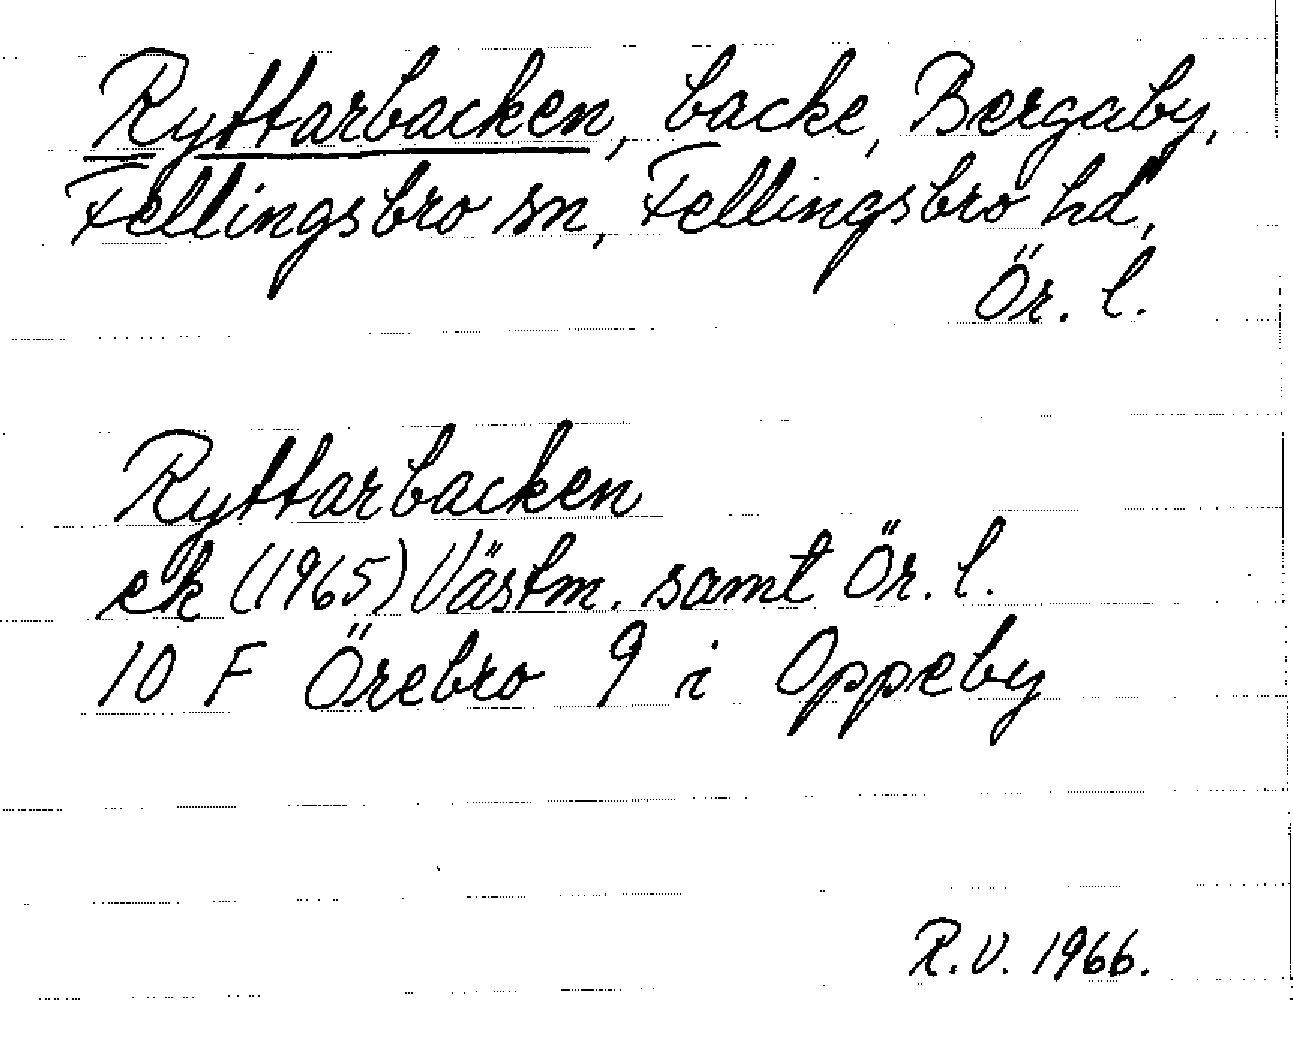 Ryttarbacken, backe, Bergaby,
Fellingsbro sn, Fellingsbro hd,
Ör. l.
Ryttarbacken
ek (1965) Västm. samt Ör. l.
10 F Örebro 9 i Oppeby
R.V. 1966.